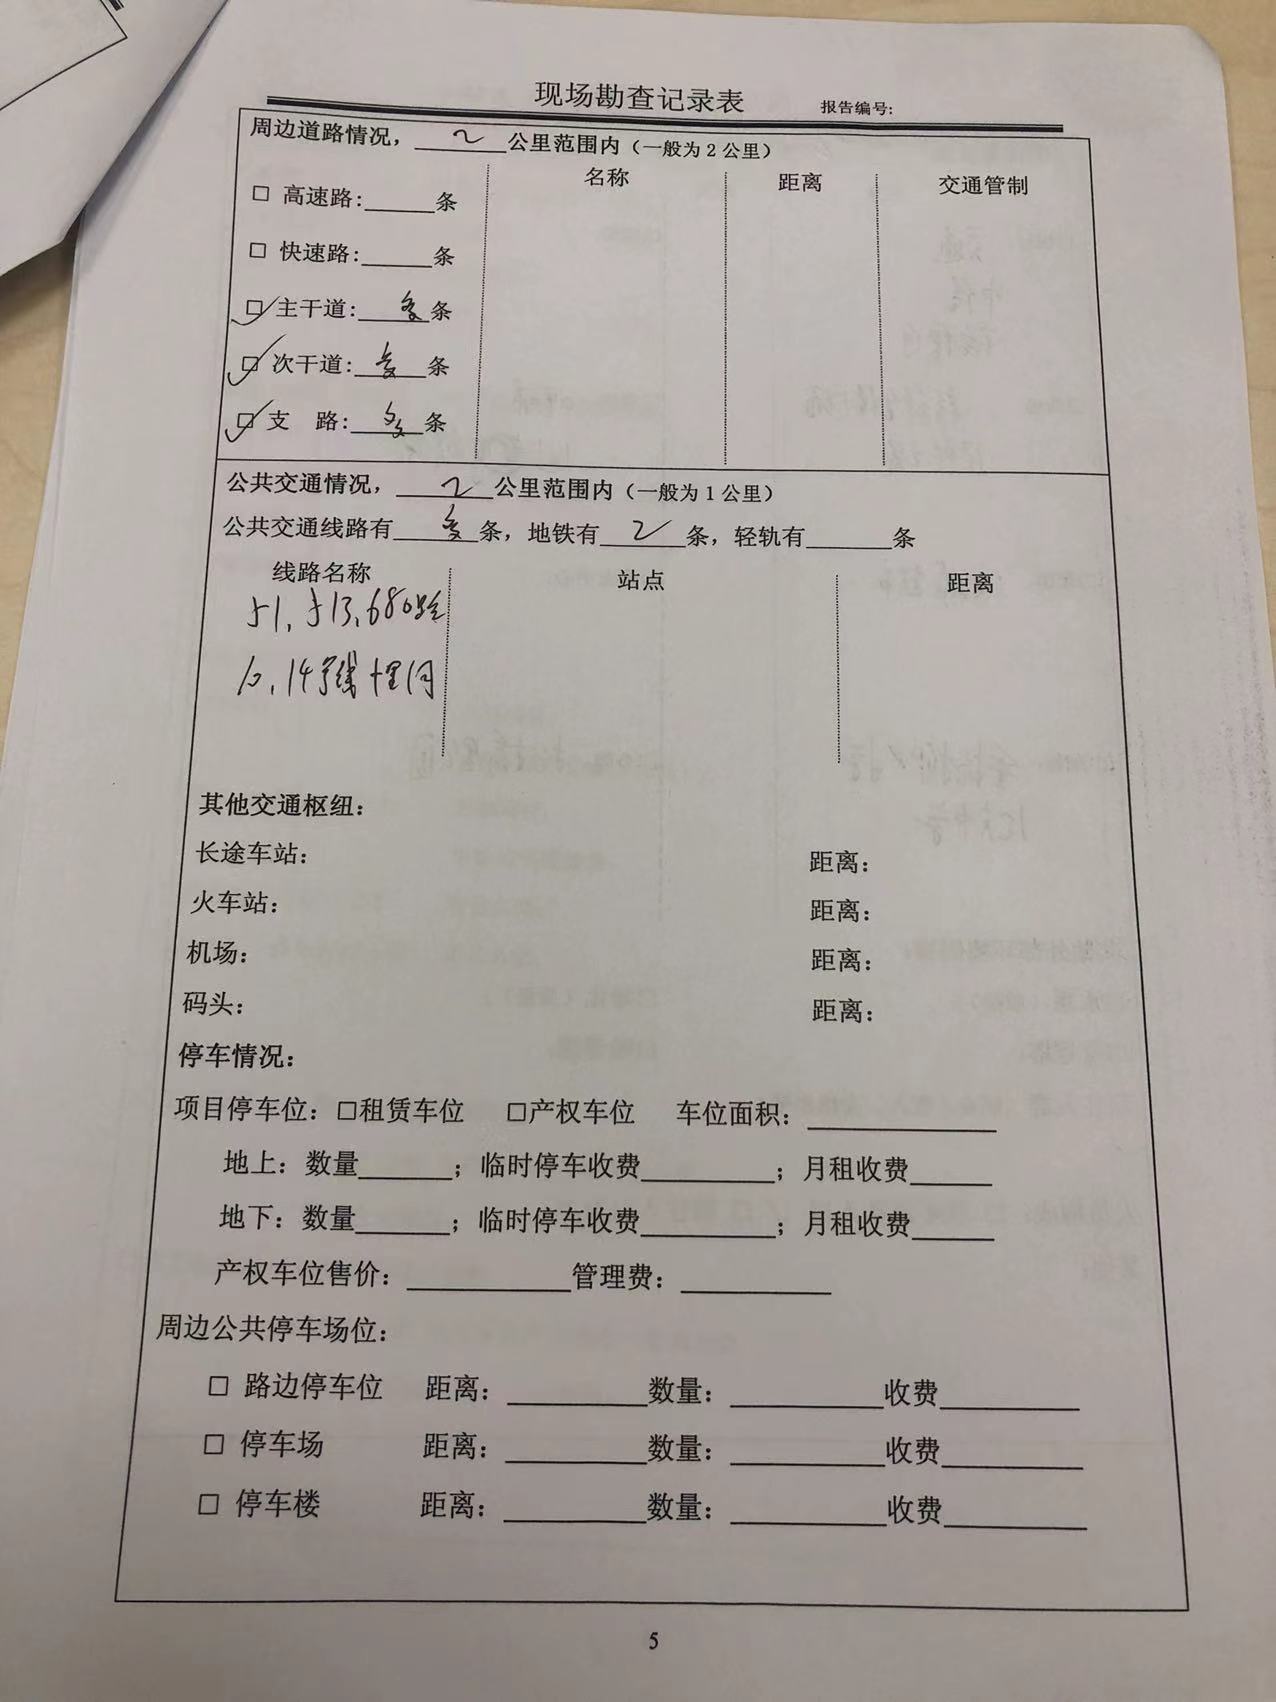 现场勘查记录表 报告编号:
周边道路情况，2公里范围内（一般为2公里）
名称 距离 交通管制
□ 高速路:______条
□ 快速路:______条
☑ 主干道:多条
☑ 次干道:多条
☑ 支 路:多条
公共交通情况，2公里范围内（一般为1公里）
公共交通线路有多条，地铁有2条，轻轨有______条
线路名称 站点 距离
51、513、680路
10、14号线十里河
其他交通枢纽：
长途车站： 距离：
火车站： 距离：
机场： 距离：
码头： 距离：
停车情况：
项目停车位：□租赁车位 □产权车位 车位面积：______
地上：数量______；临时停车收费______；月租收费______
地下：数量______；临时停车收费______；月租收费______
产权车位售价：______管理费：______
周边公共停车场位：
□ 路边停车位 距离：______数量：______收费______
□ 停车场 距离：______数量：______收费______
□ 停车楼 距离：______数量：______收费______
5